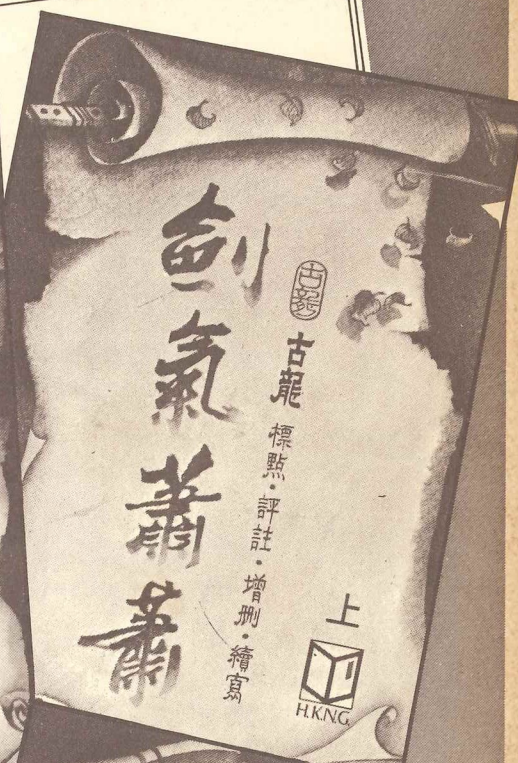 劍氣蕭蕭
古龍
古龍 標點·評註·增刪·續寫
上
H.K.N.G.